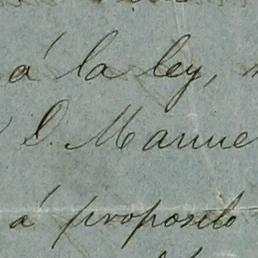 á la ley,
D. Manue
á proposito